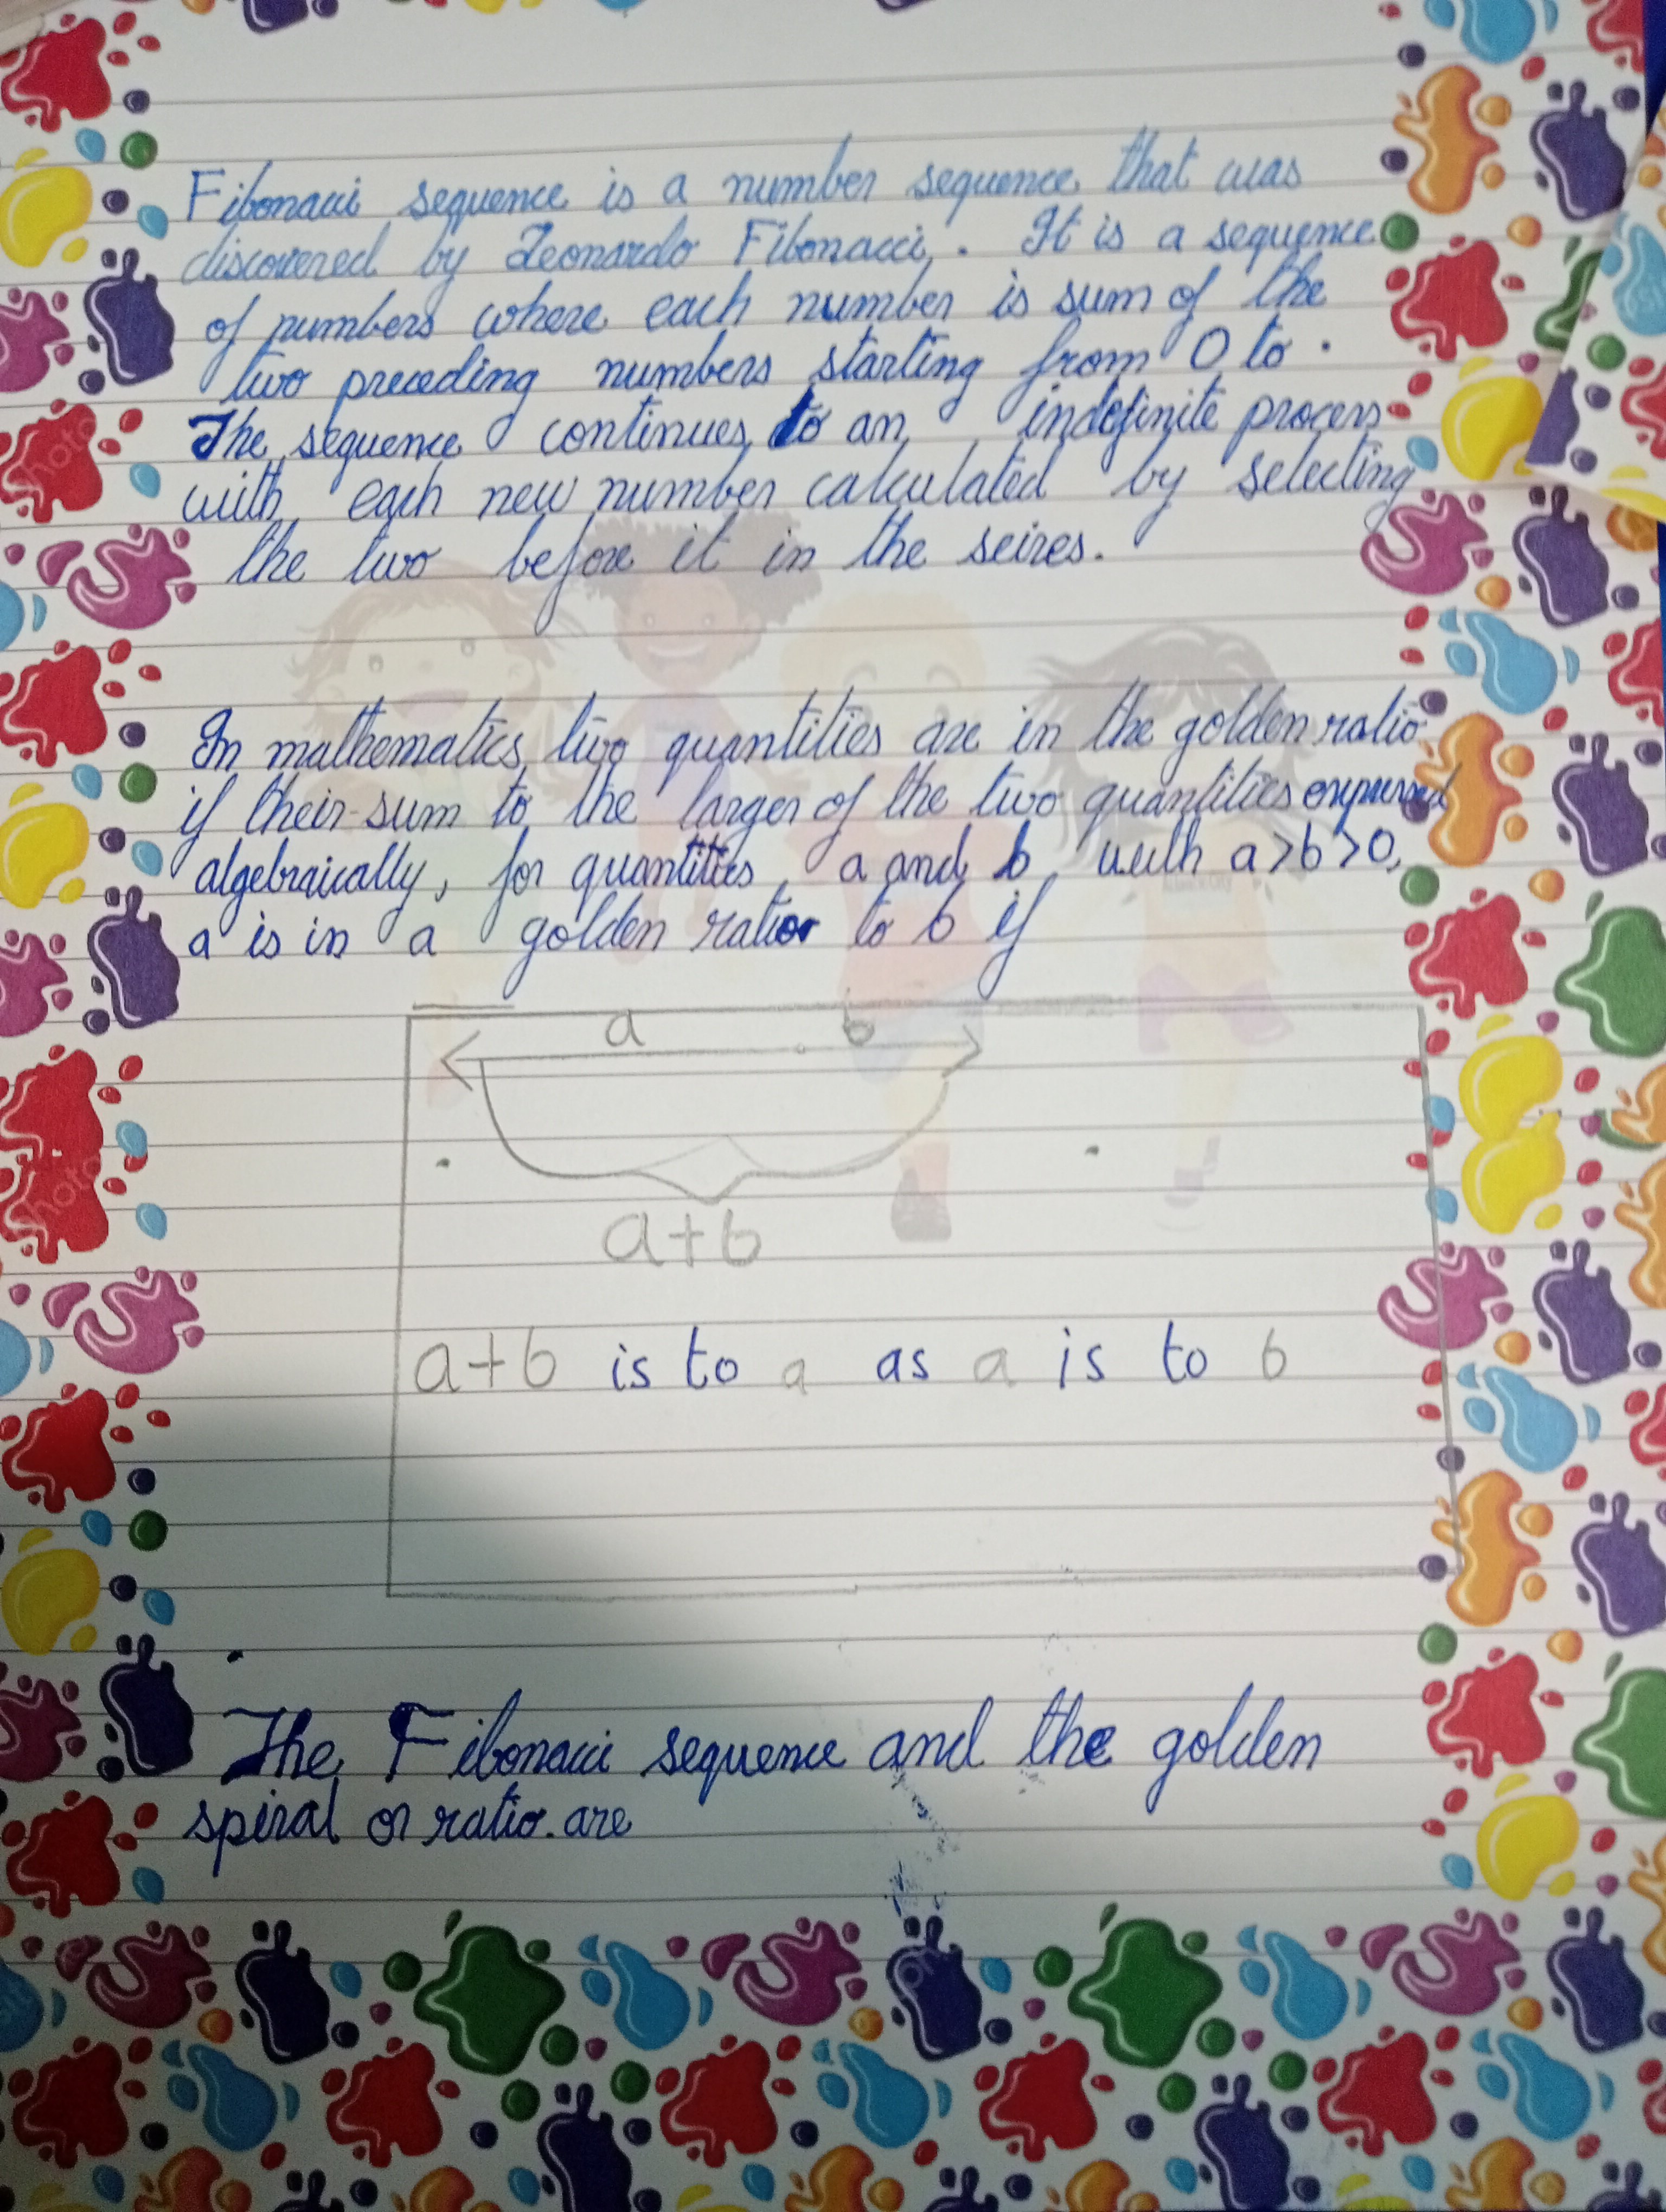 Fibonacci sequence is a number sequence that was
discovered by Leonardo Fibonacci. It is a sequence
of numbers where each number is sum of the
two preceding numbers starting from 0 to .
The sequence continues to an indefinite process
with each new number calculated by selecting
the two before it in the seires.
In mathematics two quantities are in the golden ratio
if their sum to the larger of the two quantities expressed
algebraically, for quantities a and b with a>b>0,
a is in a golden ratio to b if
a b
a+b
a+b is to a as a is to b
The Fibonacci sequence and the golden
spiral or ratio are